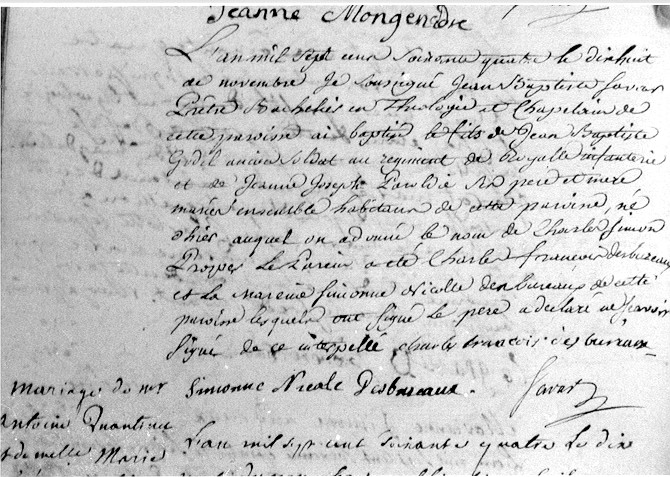 Jeanne Mongendre
L'an mil sept cens soixante quatre le dixhuit
de novembre Je soussigné Jean Baptiste Javar
Prêtre Bachelier en Theologie et Chapelain de
cette paroisse ai baptisé le fils de Jean Baptiste
ancien soldat au regiment de Royalle infanterie
et de Jeanne Joseph ses pere et mere
mariés ensemble habitans de cette paroisse, né
d'hier auquel on a donné le nom de Charles Simon
Prosper Le Parein a été Charles françois desbureaux
et la Mareine Simonne Nicolle desbureaux de cette
paroisse lesquels ont signé le pere a declaré ne sçavoir
signé de ce interpellé charles francois desbureaux
mariage de mr Simonne Nicole Desbureaux. Javar
Antoine
et de melle Marie L'an mil sept cent soixante quatre le dix